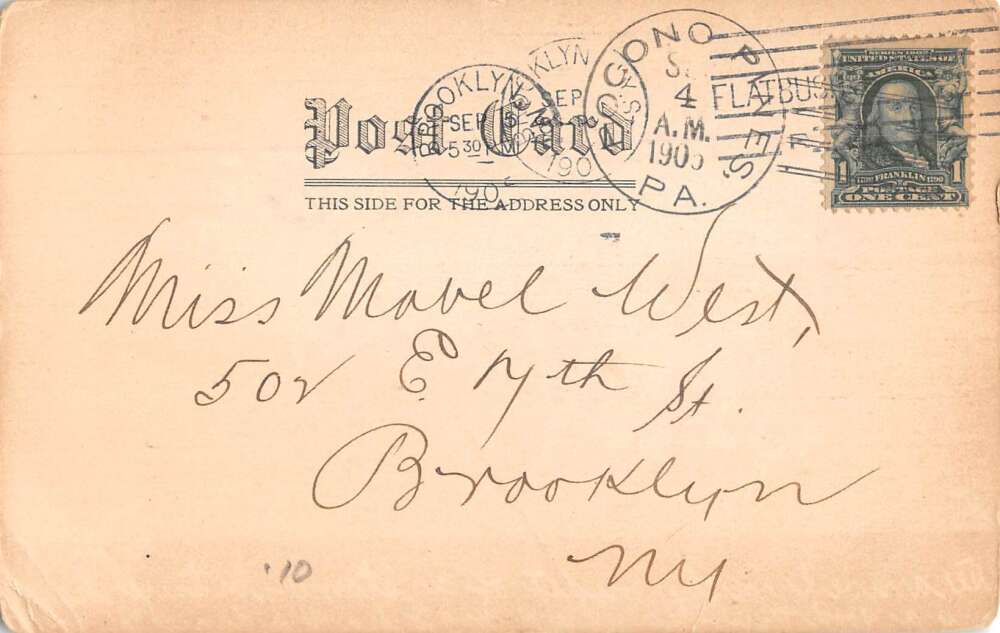 Post Card
THIS SIDE FOR THE ADDRESS ONLY
BROOKLYN, N.Y.
SEP 5
5 30 PM
190
OKLYN
SEP
190
POCONO PINES.
4
A.M.
1905
PA.
FLATBUSH
SERIES 1902
UNITED STATES OF
AMERICA
1 FRANKLIN 1
POSTAGE
ONE CENT
Miss Mabel West,
502 E 17th St.
Brooklyn
NY
.10